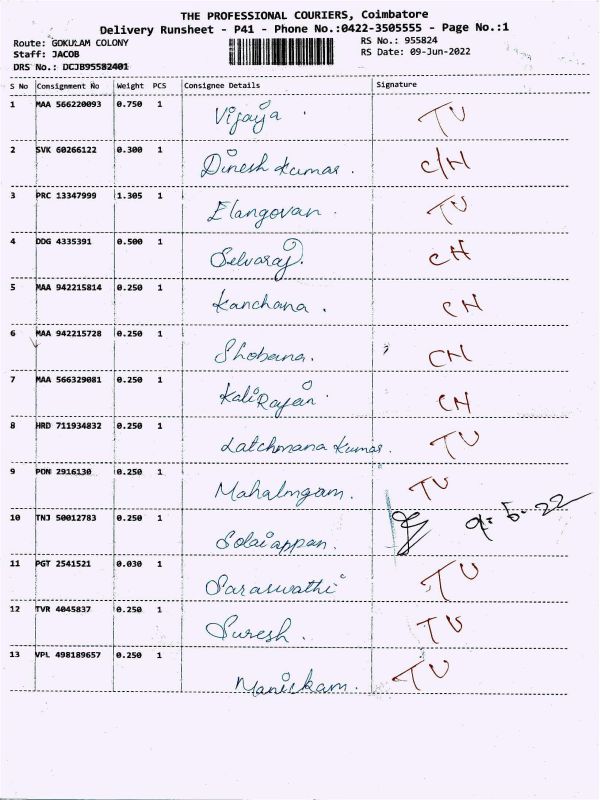 THE PROFESSIONAL COURIERS, Coimbatore
Delivery Runsheet - P41 - Phone No.:0422-3505555 - Page No.:1
Route: GOKULAM COLONY RS No.: 955824
Staff: JACOB RS Date: 09-Jun-2022
DRS No.: DCJB95582401
S No Consignment No Weight PCS Consignee Details Signature
1 MAA 566220093 0.750 1 Vijaya TU
2 SVK 60266122 0.300 1 Dinesh Kumar. C/N
3 PRC 13347999 1.305 1 Elangovan. TU
4 DDG 4335391 0.500 1 Selvaraj. CN
5 MAA 942215814 0.250 1 Kanchana. CN
6 MAA 942215728 0.250 1 Shobana. CN
7 MAA 566329081 0.250 1 Kali Rajan. CN
8 HRD 711934832 0.250 1 Latchmana Kumar. TU
9 PON 2916130 0.250 1 Mahalingam. TU
10 TNJ 50012783 0.250 1 Solaiappan. 9-5-22
11 PGT 2541521 0.030 1 Saraswathi TU
12 TVR 4045837 0.250 1 Suresh. TU
13 VPL 498189657 0.250 1 Manickam. TU